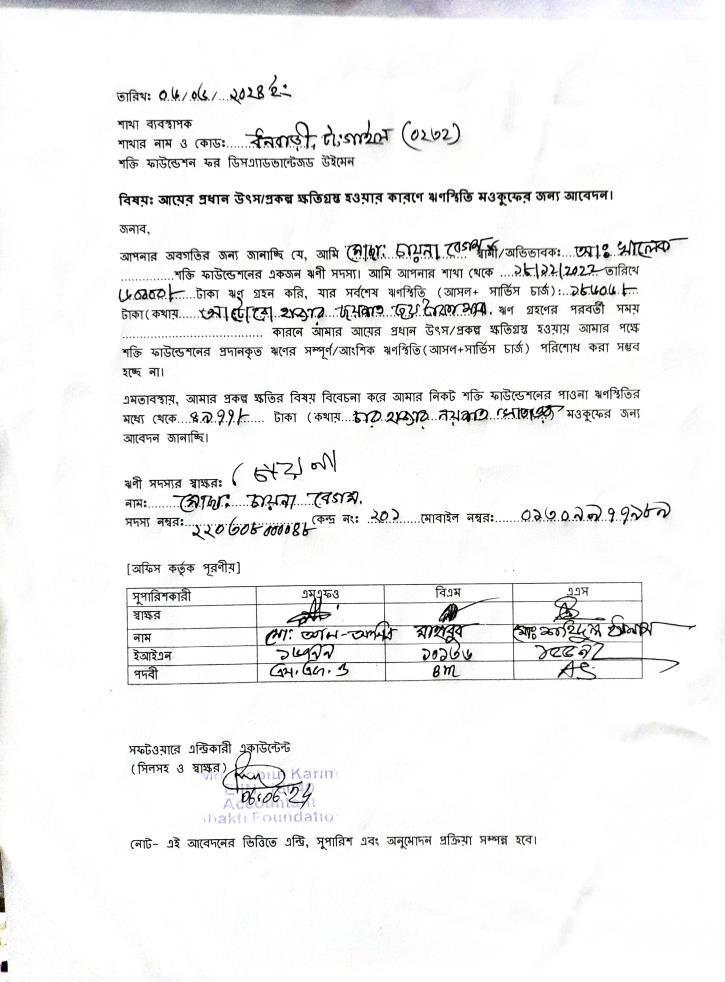 তারিখ: ০৬/০৬/....২০২৪ ইং
শাখা ব্যবস্থাপক
শাখার নাম ও কোড:...... ধনবাড়ী, টাংগাইল (০২৩২)
শক্তি ফাউন্ডেশন ফর ডিসএ্যাডভান্টেজড উইমেন
বিষয়: আয়ের প্রধান উৎস/প্রকল্প ক্ষতিগ্রস্ত হওয়ার কারণে ঋণস্থিতি মওকুফের জন্য আবেদন।
জনাব,
আপনার অবগতির জন্য জানাচ্ছি যে, আমি মোছা: চায়না বেগম স্বামী/অভিভাবক:.... আঃ খালেক
................শক্তি ফাউন্ডেশনের একজন ঋণী সদস্য। আমি আপনার শাখা থেকে .... তারিখে
টাকা ঋণ গ্রহন করি, যার সর্বশেষ ঋণস্থিতি (আসল+ সার্ভিস চার্জ):
টাকা(কথায়...... হাজার ঋণ গ্রহণের পরবর্তী সময়
.................................. কারনে আমার আয়ের প্রধান উৎস/প্রকল্প ক্ষতিগ্রস্ত হওয়ায় আমার পক্ষে
শক্তি ফাউন্ডেশনের প্রদানকৃত ঋণের সম্পূর্ণ/আংশিক ঋণস্থিতি(আসল+সার্ভিস চার্জ) পরিশোধ করা সম্ভব
হচ্ছে না।
এমতাবস্থায়, আমার প্রকল্প ক্ষতির বিষয় বিবেচনা করে আমার নিকট শক্তি ফাউন্ডেশনের পাওনা ঋণস্থিতির
মধ্যে থেকে....৪৯৭৭/-...... টাকা (কথায়... চার হাজার নয়শত সাতাত্তর মওকুফের জন্য
আবেদন জানাচ্ছি।
ঋণী সদস্যর স্বাক্ষর: চায়না
নাম:...... মোছা: চায়না বেগম
সদস্য নম্বর: কেন্দ্র নং: ২০১ মোবাইল নম্বর:
[অফিস কর্তৃক পূরণীয়]
সুপারিশকারী এমএফও বিএম এএস
স্বাক্ষর
নাম মো: আল-আমিন মাহবুব মোঃ শহিদুল ইসলাম
ইআইএন ১০১৩৬
পদবী এম.এফ.ও BM AS
সফটওয়ারে এন্ট্রিকারী একাউন্টেন্ট
(সিলসহ ও স্বাক্ষর) Karim
06.06.24
Accountant
Shakti Foundation
নোট- এই আবেদনের ভিত্তিতে এন্ট্রি, সুপারিশ এবং অনুমোদন প্রক্রিয়া সম্পন্ন হবে।